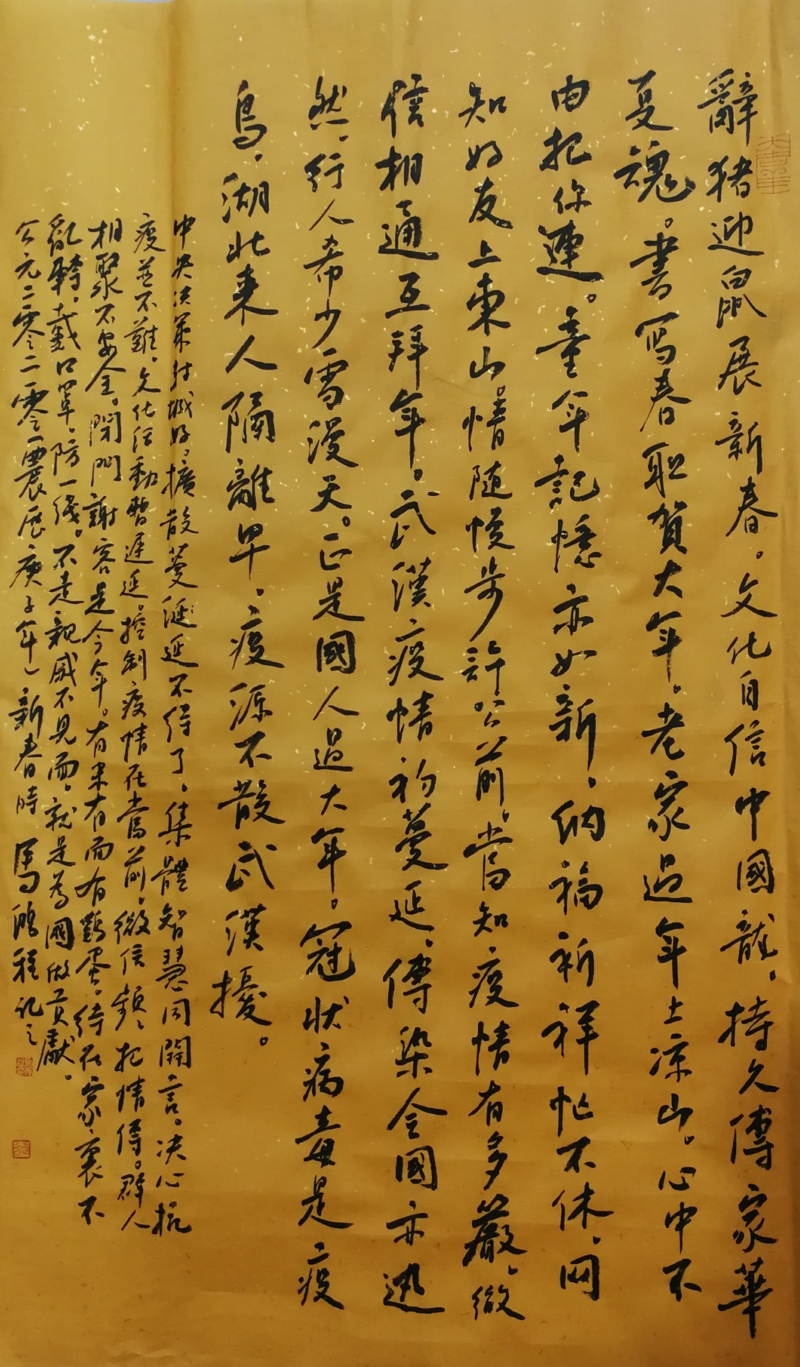 辭猪迎鼠展新春。文化自信中國龍，持久傳家華
夏魂。書写春联贺大年，老家過年上凉山。心中不
由把你連。童年記憶亦如新，纳福祈祥忙不休，网
知好友上東山。情随慢步許公前，當知疫情有多嚴，微
信相通互拜年。武漢疫情初蔓延，傳染全國亦迅
然，行人希少雪漫天。正是國人過大年。冠状病毒是疫
鸟，湖北来人隔離早，疫源不散武漢擾。
中央决策封城好，擴散蔓延延不得了，集體智慧同開言。决心抗
疫并不難，文化活動暂遲延，控制疫情在當前，微信频频把情传。群人
相聚不安全。閉門謝客是今年。有米有面有鸡蛋，待在家裏不
亂轉，戴口罩，防一线。不走親戚不見面，就是為國做贡獻。
公元二零二零農历庚子年新春時 馬 程記之